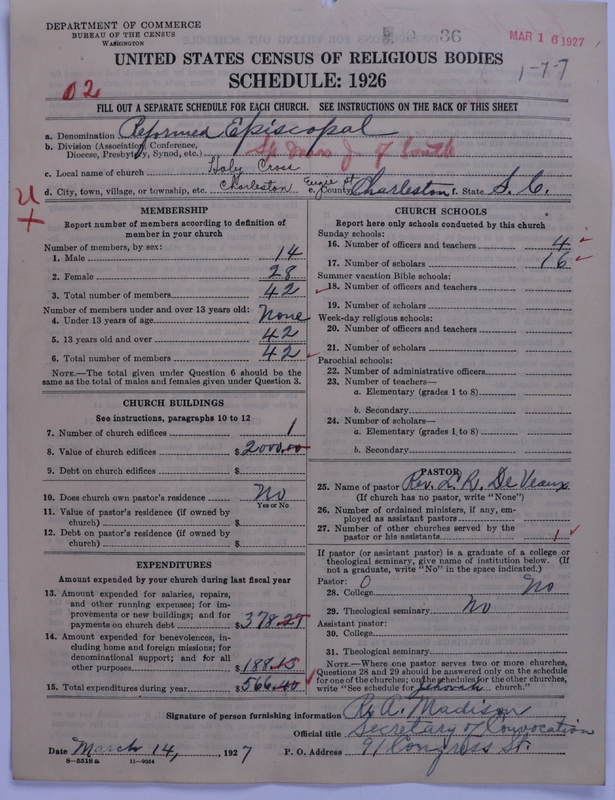 DEPARTMENT OF COMMERCE
BUREAU OF THE CENSUS
WASHINGTON
36
MAR 16 1927
UNITED STATES CENSUS OF RELIGIOUS BODIES
1-7-7
SCHEDULE: 1926
02
FILL OUT A SEPARATE SCHEDULE FOR EACH CHURCH. SEE INSTRUCTIONS ON THE BACK OF THIS SHEET
a. Denomination Reformed Episcopal
b. Division (Association, Conference,
Diocese, Presbytery, Synod, etc.) of South
c. Local name of church Holy Cross
d. City, town, village, or township, etc. Charleston e. County Charleston f. State S. C.
MEMBERSHIP
Report number of members according to definition of
member in your church
Number of members, by sex:
1. Male 14
2. Female 28
3. Total number of members 42
Number of members under and over 13 years old:
4. Under 13 years of age None
5. 13 years old and over 42
6. Total number of members 42
NOTE.—The total given under Question 6 should be the
same as the total of males and females given under Question 3.
CHURCH BUILDINGS
See instructions, paragraphs 10 to 12
7. Number of church edifices 1
8. Value of church edifices $ 2000.00
9. Debt on church edifices $
10. Does church own pastor's residence No
Yes or No
11. Value of pastor's residence (if owned by
church) $
12. Debt on pastor's residence (if owned by
church) $
EXPENDITURES
Amount expended by your church during last fiscal year
13. Amount expended for salaries, repairs,
and other running expenses; for im-
provements or new buildings; and for
payments on church debt $ 378.25
14. Amount expended for benevolences, in-
cluding home and foreign missions; for
denominational support; and for all
other purposes $ 188.15
15. Total expenditures during year $ 566.40
CHURCH SCHOOLS
Report here only schools conducted by this church
Sunday schools:
16. Number of officers and teachers 4
17. Number of scholars 16
Summer vacation Bible schools:
18. Number of officers and teachers
19. Number of scholars
Week-day religious schools:
20. Number of officers and teachers
21. Number of scholars
Parochial schools:
22. Number of administrative officers
23. Number of teachers—
a. Elementary (grades 1 to 8)
b. Secondary
24. Number of scholars—
a. Elementary (grades 1 to 8)
b. Secondary
PASTOR
25. Name of pastor Rev. L. R. De Veaux
(If church has no pastor, write "None")
26. Number of ordained ministers, if any, em-
ployed as assistant pastors
27. Number of other churches served by the
pastor or his assistants 1
If pastor (or assistant pastor) is a graduate of a college or
theological seminary, give name of institution below. (If
not a graduate, write "No" in the space indicated.)
Pastor: 0
28. College No
29. Theological seminary No
Assistant pastor:
30. College
31. Theological seminary
NOTE.—Where one pastor serves two or more churches,
Questions 28 and 29 should be answered only on the schedule
for one of the churches; on the schedules for the other churches,
write "See schedule for Jehovah church."
Signature of person furnishing information R. A. Madison
Official title Secretary of Convocation
Date March 14, 1927 P. O. Address 91 Congress St.
8-5518 a 11-9054